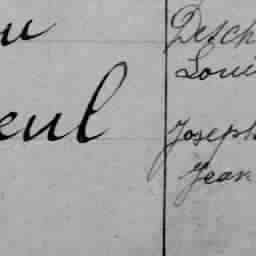 u
eul
Desch
Loui
Joseph
Jean